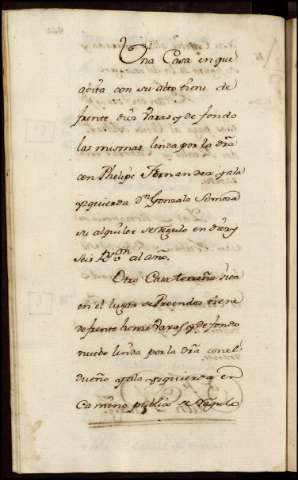 Una Casa en que
avita con su alto tiene de
frente dies Varas y de fondo
las mismas linda por la dra
con Phelipe Fernandez y ala
ysquierda Dn Gonzalo
su alquiler se regulo en dies y
seis Rs von al ano.
Otra Casa terreña
en el lugar de tiene
de frente Varas y de fondo
nuebe linda por la dra con el
dueño y ala ysquierda en
Camino publico se regula